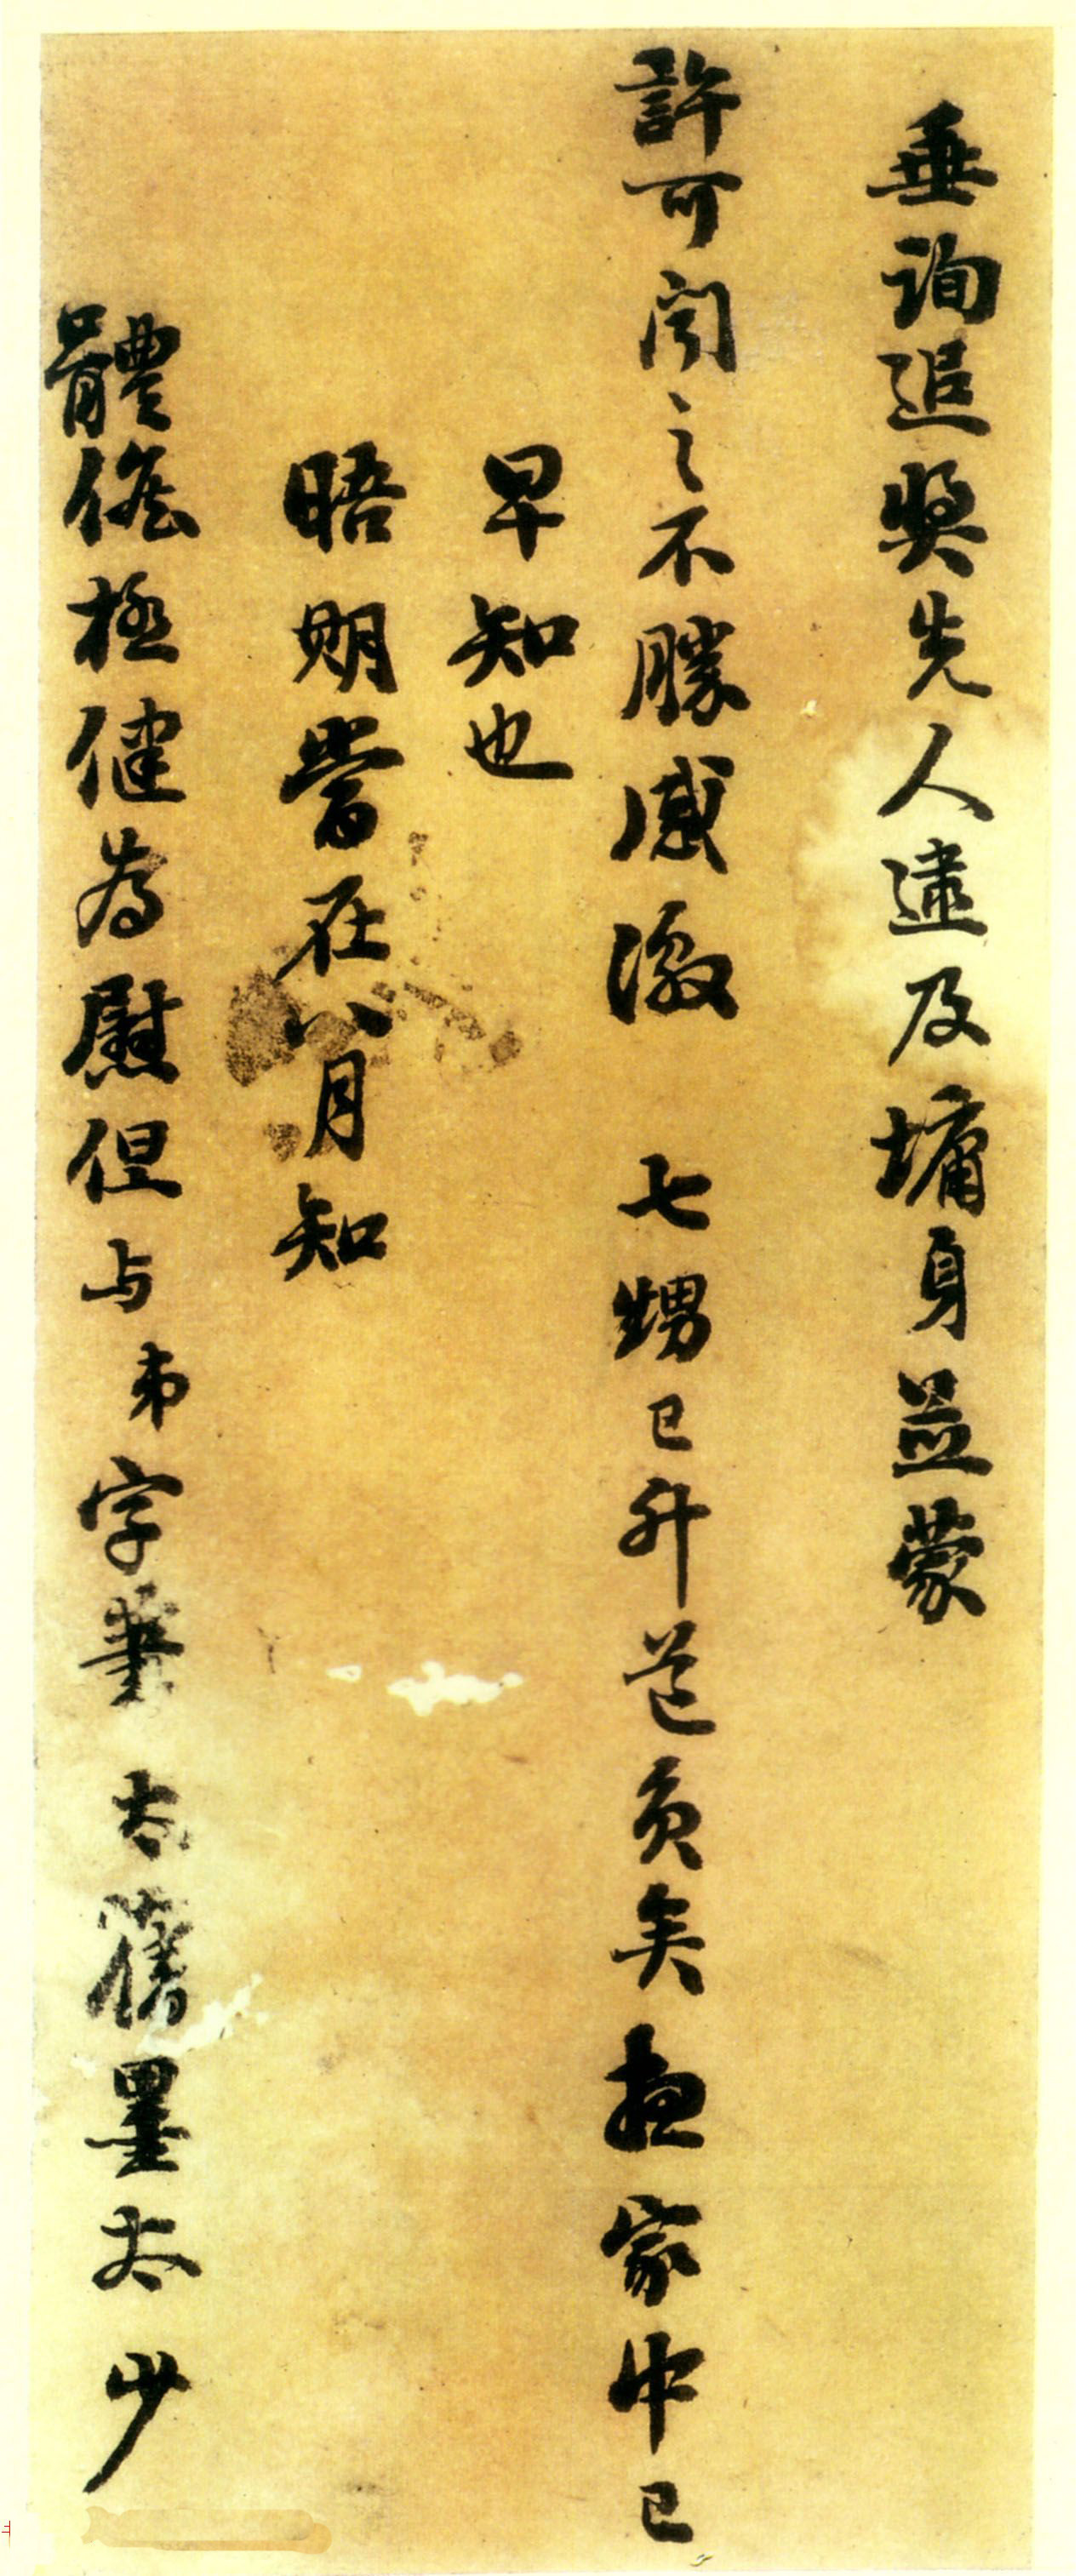 垂詢追獎先人逮及墉身並蒙
許可聞之不勝感激 七甥已升道員矣想家中已
早知也
晤期當在八月知
體極健為慰但与弟字筆太舊墨太少